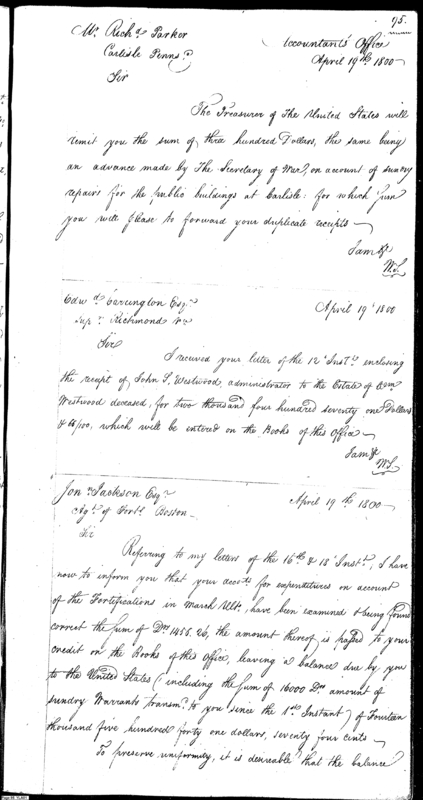 75.
Mr. Richd Parker
Carlisle Penns.a
Accountants Office
April 19th 1800
Sir
The Treasurer of The United States will
remit you the sum of three hundred Dollars, the same being
an advance made by The Secretary of War, on account of sundry
repairs for the public buildings at Carlisle: for which sum
you will please to forward your duplicate receipts
I am &c
W.S.
Edwd Carrington Esqr.
Supr. Richmond Va
April 19th 1800
Sir
I received your letter of the 12th Inst. enclosing
the receipt of John S. Westwood, administrator to the Estate of
Westwood deceased, for two thousand four hundred seventy one Dollars
& 66/100, which will be entered on the Books of this Office
I am &c
W.S.
Jon. Jackson Esqr.
Agt. of Forts. Boston
April 19th 1800
Sir
Referring to my letters of the 16th & 18th Inst., I have
now to inform you that your accots for expenditures on account
of the Fortifications in March Ulto. have been examined & being found
correct the sum of Drs 1455.26, the amount thereof is passed to your
credit on the Books of this Office, leaving a balance due by you
to the United States (including the sum of 16000 Drs amount of
sundry Warrants transmd. to you since the 1st Instant) of Fourteen
thousand five hundred forty one dollars, seventy four cents
To preserve uniformity, it is desireable that the balance